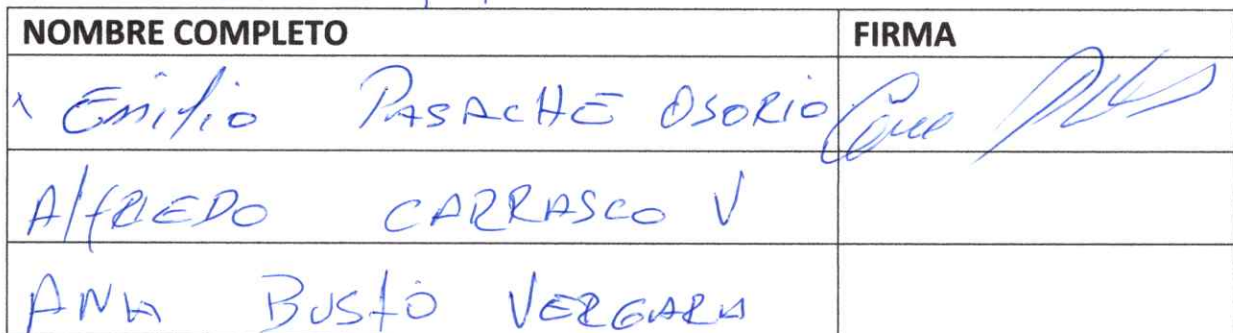 NOMBRE COMPLETO FIRMA
Emilio PASACHE OSORIO
AlfREDO CARRASCO V
ANA BUSTO VERGARA